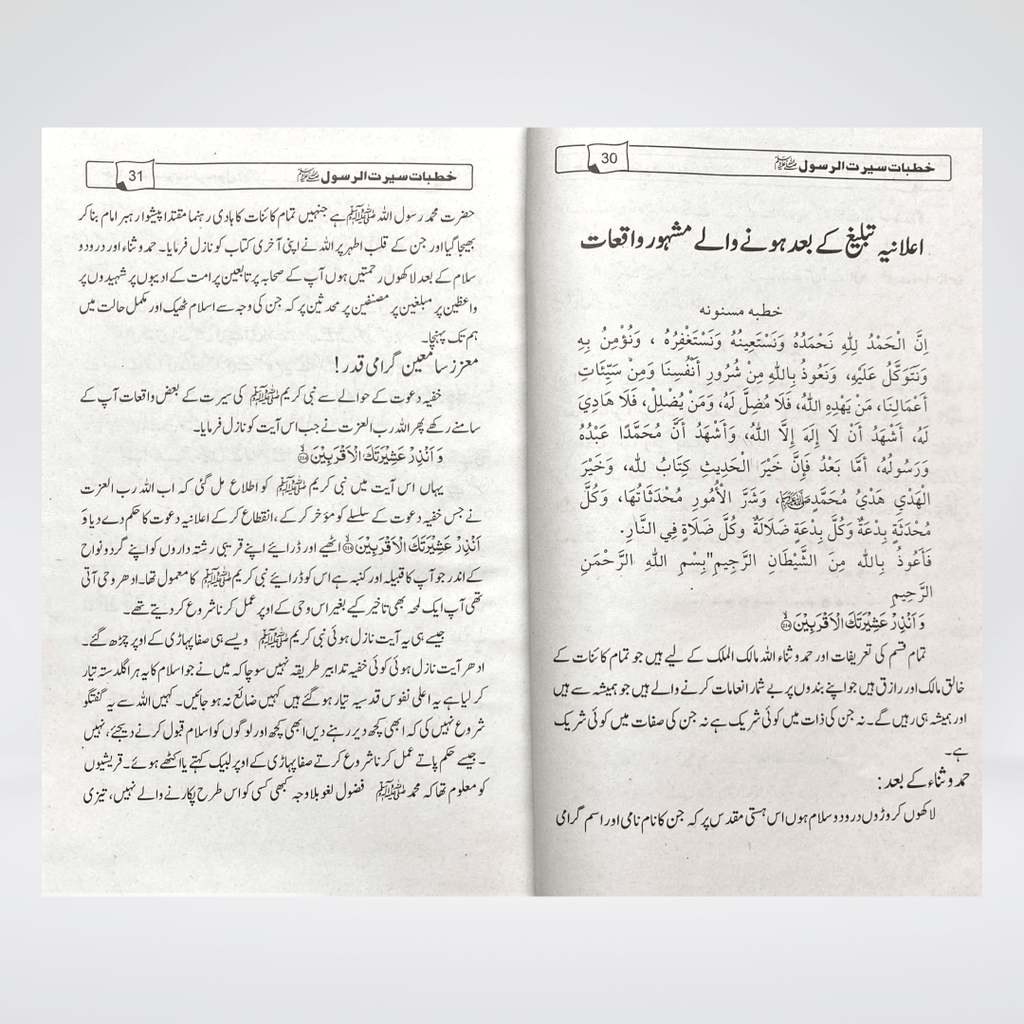 خطبات سیرت الرسول ﷺ
30
اعلانیہ تبلیغ کے بعد ہونے والے مشہور واقعات
خطبہ مسنونہ
اِنَّ الْحَمْدُ لِلّٰهِ نَحْمَدُهُ وَنَسْتَعِينُهُ وَنَسْتَغْفِرُهُ ، وَنُؤْمِنُ بِهِ
وَنَتَوَكَّلُ عَلَيْهِ، وَنَعُوذُ بِاللّٰهِ مِنْ شُرُورِ أَنْفُسِنَا وَمِنْ سَيِّئَاتِ
أَعْمَالِنَا، مَنْ يَهْدِهِ اللّٰهُ، فَلَا مُضِلَّ لَهُ، وَمَنْ يُضْلِلْ، فَلَا هَادِيَ
لَهُ، أَشْهَدُ أَنْ لَا إِلَهَ إِلَّا اللّٰهُ، وَأَشْهَدُ أَنَّ مُحَمَّدًا عَبْدُهُ
وَرَسُولُهُ، أَمَّا بَعْدُ فَإِنَّ خَيْرَ الْحَدِيثِ كِتَابُ لله، وَخَيْرَ
الْهَدْيِ هَدْيُ مُحَمَّدٍ ﷺ، وَشَرَّ الْأُمُورِ مُحْدَثَاتُهَا، وَكُلَّ
مُحْدَثَةٍ بِدْعَةٌ وَكُلَّ بِدْعَةٍ ضَلَالَةٌ وكُلَّ ضَلَاةٍ فِي النَّارِ.
فَأَعُوذُ بِالله مِنَ الشَّيْطَانِ الرَّجِيم"بِسْمِ اللهِ الرَّحْمٰنِ
الرَّحِيمِ
وَ اَنْذِرْ عَشِيْرَتَكَ الْاَقْرَبِيْنَ ﴿۲۱۴﴾
تمام قسم کی تعریفات اور حمد و ثناء اللہ مالک الملک کے لیے ہیں جو تمام کائنات کے
خالق مالک اور رازق ہیں جو اپنے بندوں پر بے شمار انعامات کرنے والے ہیں جو ہمیشہ سے ہیں
اور ہمیشہ ہی رہیں گے۔ نہ جن کی ذات میں کوئی شریک ہے نہ جن کی صفات میں کوئی شریک
ہے۔
حمد و ثناء کے بعد:
لاکھوں کروڑوں درود و سلام ہوں اس ہستی مقدس پر کہ جن کا نام نامی اور اسم گرامی
خطبات سیرت الرسول ﷺ
31
حضرت محمد رسول اللہ ﷺ ہے جنہیں تمام کائنات کا ہادی رہنما مقتدا پیشوا رہبر امام بنا کر
بھیجا گیا اور جن کے قلب اطہر پر اللہ نے اپنی آخری کتاب کو نازل فرمایا۔ حمد و ثناء اور درود و
سلام کے بعد لاکھوں رحمتیں ہوں آپ کے صحابہ پر تابعین پر امت کے ادیبوں پر شہیدوں پر
واعظین پر مبلغین پر مصنفین پر محدثین پر کہ جن کی وجہ سے اسلام ٹھیک اور مکمل حالت میں
ہم تک پہنچا۔
معزز سامعین گرامی قدر!
خفیہ دعوت کے حوالے سے نبی کریم ﷺ کی سیرت کے بعض واقعات آپ کے
سامنے رکھے پھر اللہ رب العزت نے جب اس آیت کو نازل فرمایا۔
وَ اَنْذِرْ عَشِيْرَتَكَ الْاَقْرَبِيْنَ ﴿۲۱۴﴾
یہاں اس آیت میں نبی کریم ﷺ کو اطلاع مل گئی کہ اب اللہ رب العزت
نے جس خفیہ دعوت کے سلسلے کو مؤخر کر کے، انقطاع کر کے اعلانیہ دعوت کا حکم دے دیا وَ
اَنْذِرْ عَشِيْرَتَكَ الْاَقْرَبِيْنَ ﴿۲۱۴﴾ اٹھیے اور ڈرائے اپنے قریبی رشتہ داروں کو اپنے گرد و نواح
کے اندر جو آپ کا قبیلہ اور کنبہ ہے اس کو ڈرائے نبی کریم ﷺ کا معمول تھا۔ ادھر وحی آتی
تھی آپ ایک لمحہ بھی تاخیر کیے بغیر اس وحی کے اوپر عمل کرنا شروع کر دیتے تھے۔
جیسے ہی یہ آیت نازل ہوئی نبی کریم ﷺ ویسے ہی صفا پہاڑی کے اوپر چڑھ گئے۔
ادھر آیت نازل ہوئی کوئی خفیہ تدابیر طریقہ نہیں سوچا کہ میں نے جو اسلام کا یہ ہرا گلدستہ تیار
کر لیا ہے یہ اعلی نفوس قدسیہ تیار ہو گئے ہیں کہیں ضائع نہ ہو جائیں۔ کہیں اللہ سے یہ گفتگو
شروع نہیں کی کہ ابھی کچھ دیر رہنے دیں ابھی کچھ اور لوگوں کو اسلام قبول کرنے دیجئے، نہیں
۔ جیسے حکم پاتے عمل کرنا شروع کرتے صفا پہاڑی کے اوپر لبیک کہتے یا اکٹھے ہوئے۔ قریشیوں
کو معلوم تھا کہ محمد ﷺ فضول لغو بلا وجہ کبھی کسی کو اس طرح پکارنے والے نہیں، تیزی